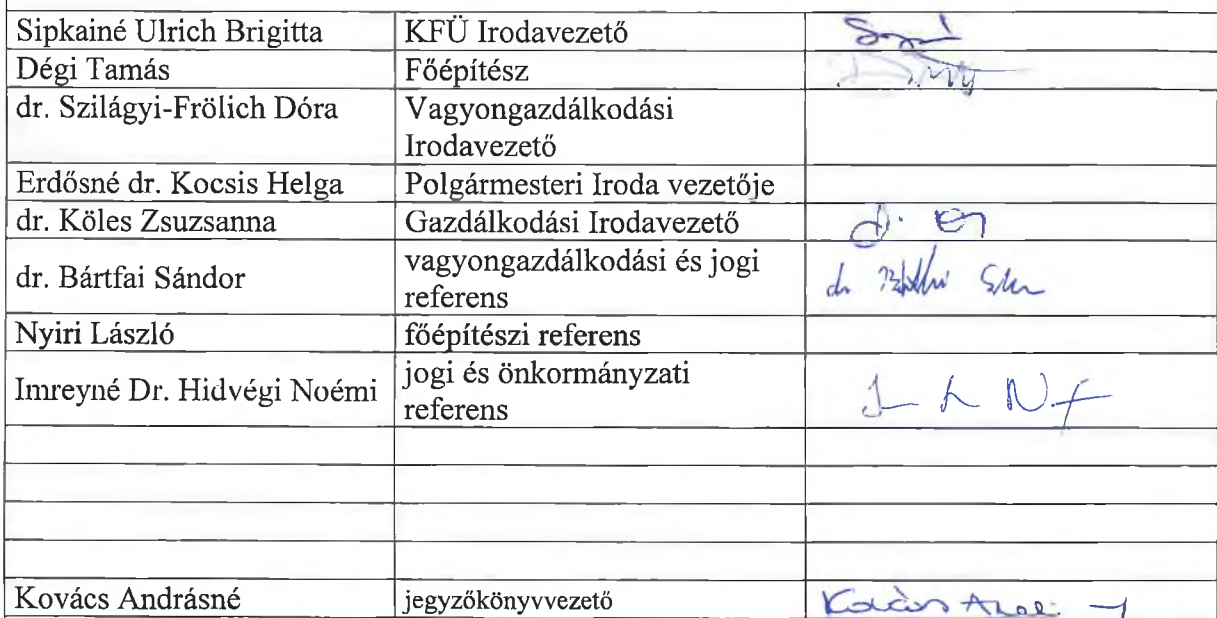 Sipkainé Ulrich Brigitta KFÜ Irodavezető
Dégi Tamás Főépítész
dr. Szilágyi-Frölich Dóra Vagyongazdálkodási
Irodavezető
Erdősné dr. Kocsis Helga Polgármesteri Iroda vezetője
dr. Köles Zsuzsanna Gazdálkodási Irodavezető
dr. Bártfai Sándor vagyongazdálkodási és jogi
referens
Nyiri László főépítészi referens
Imreyné Dr. Hidvégi Noémi jogi és önkormányzati
referens
Kovács Andrásné jegyzőkönyvvezető